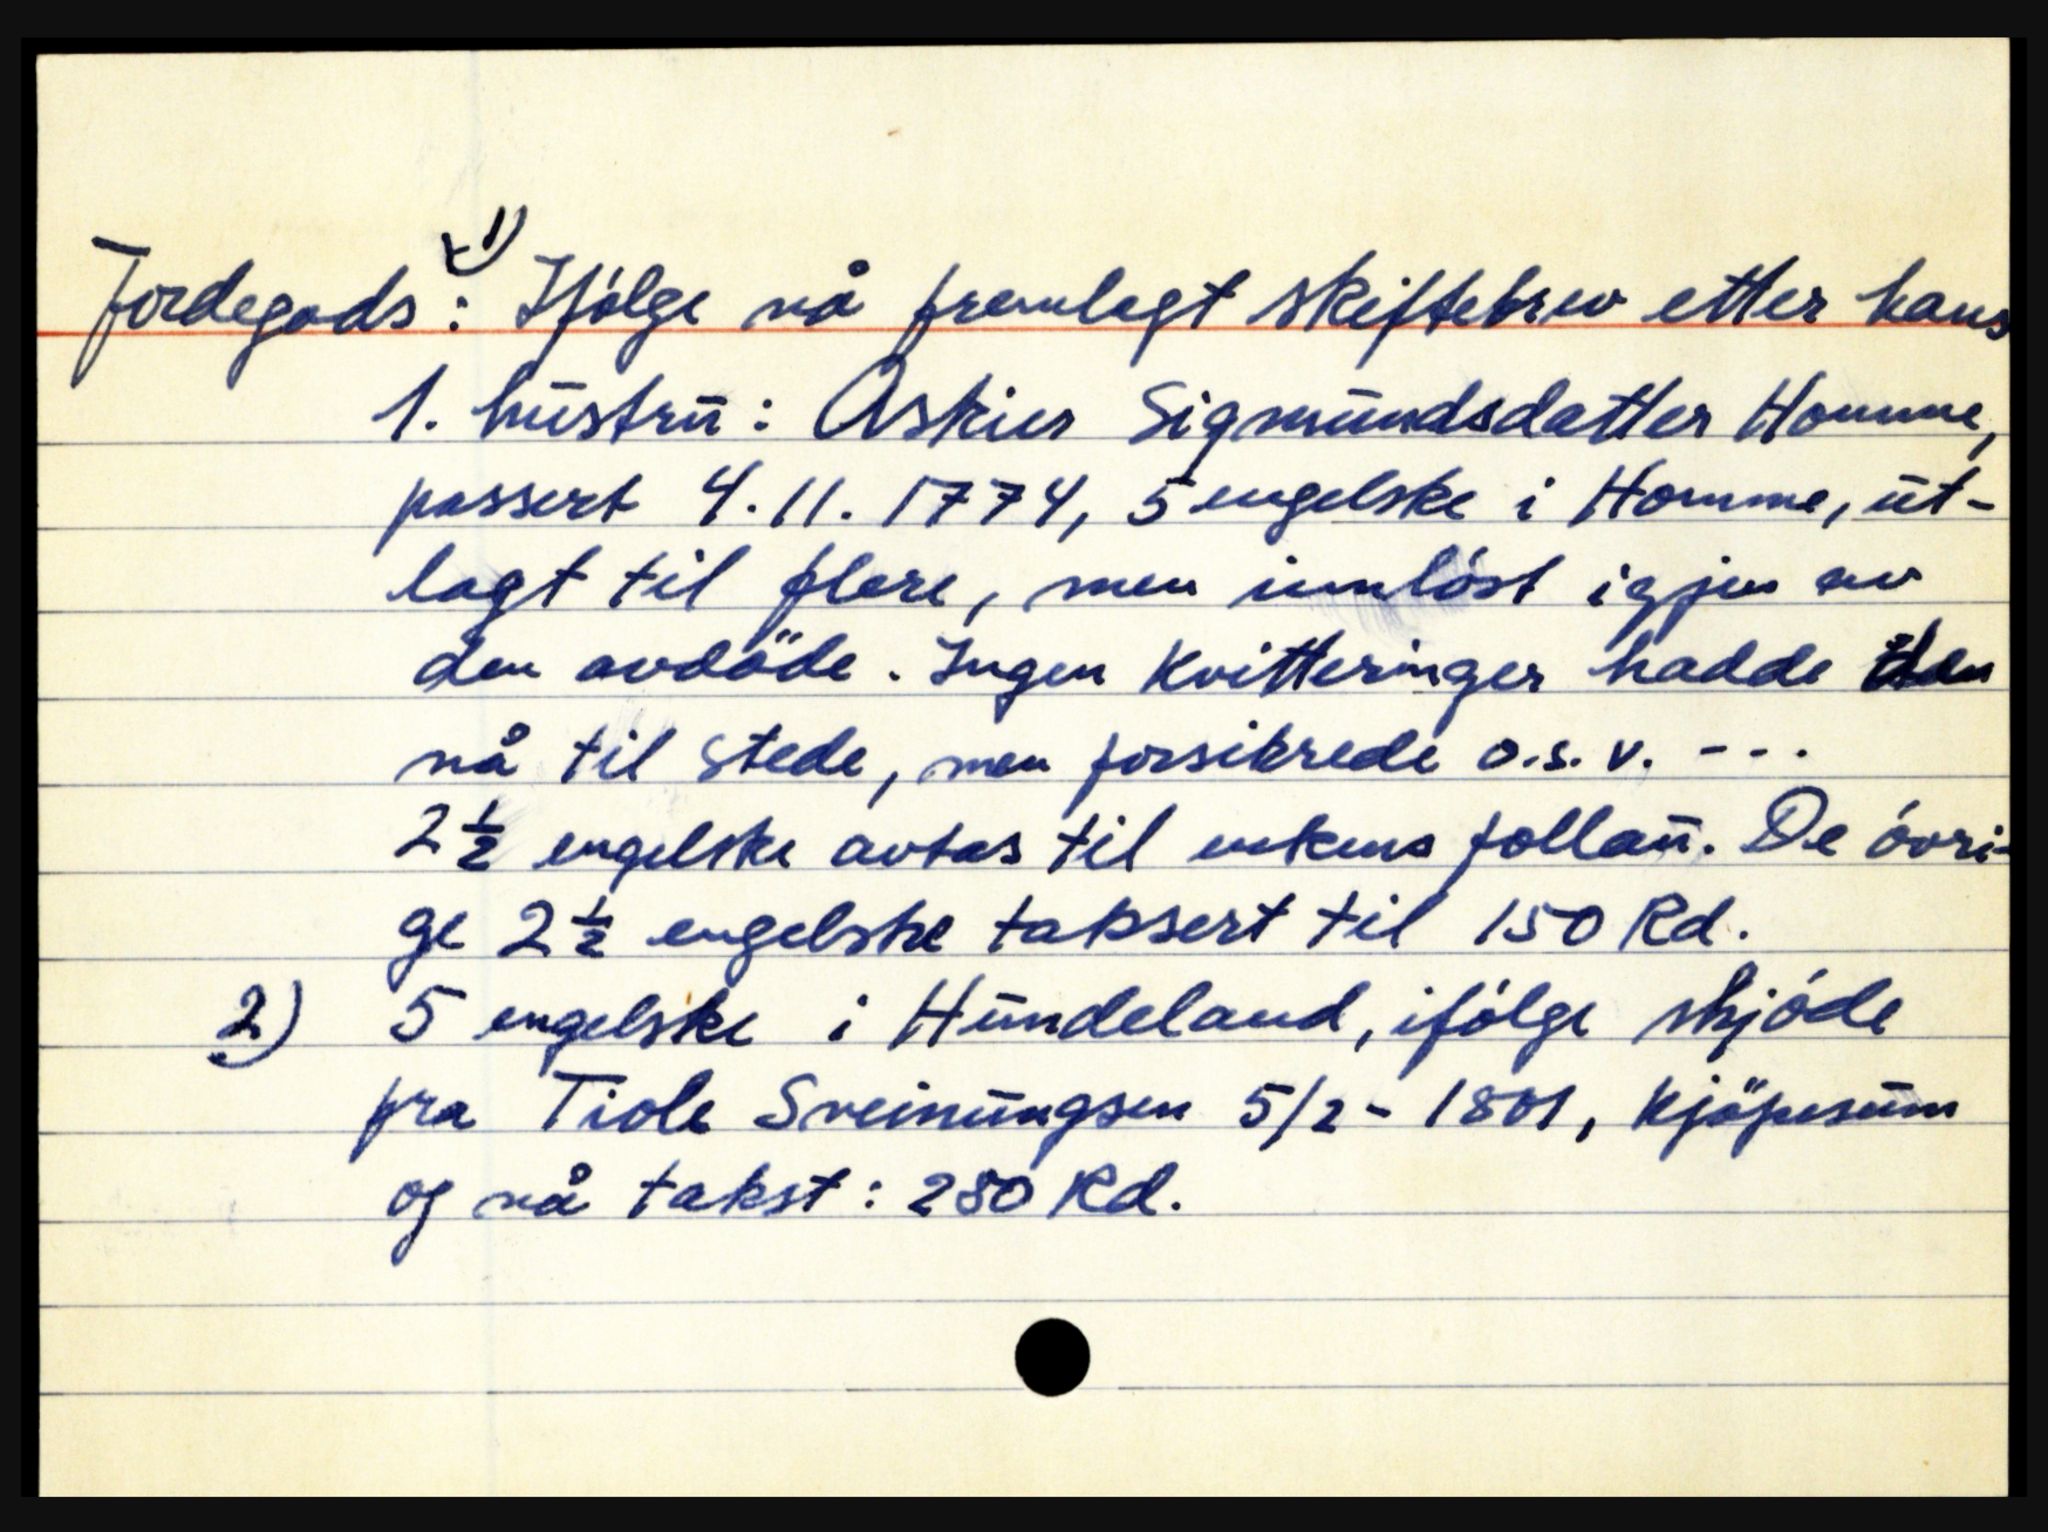 1)
Jordegods: Ifølge nå fremlagt skiftebrev etter hans
1. hustru: Askier Sigmundsdatter Homme,
passert 4.11.1774, 5 engelske i Homme, ut-
lagt til flere, men innløst igjen av
den avdøde. Ingen kvitteringer hadde den
nå til stede, men forsikrede o.s.v. ---
2 1/2 engelske avtas til enkens follau. De øvri-
ge 2 1/2 engelske taksert til 150 Rd.
2) 5 engelske i Hundeland, ifølge skjøde
fra Tiole Sveinungsen 5/2 - 1801, kjøpesum
og nå takst: 280 Rd.